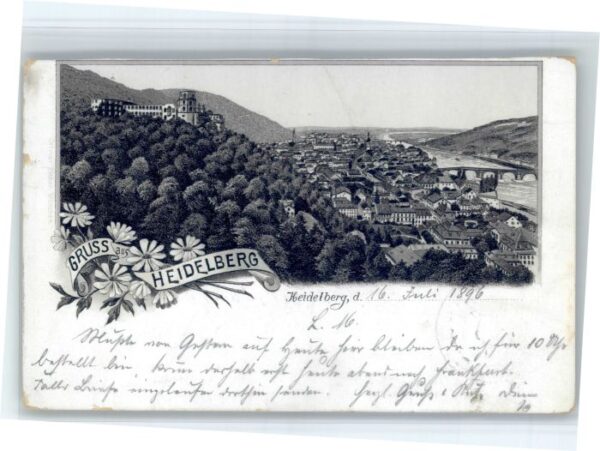 GRUSS aus
HEIDELBERG
Heidelberg, d. 16. Juli 1896
L. M.
Mußte von Gestern auf Heute hier bleiben da ich für 10 Uhr
bestellt bin, kann deshalb erst heute abend nach Frankfurt.
Falls Briefe eingelaufen dorthin senden. Herzl. Gruß & Kuß Dein